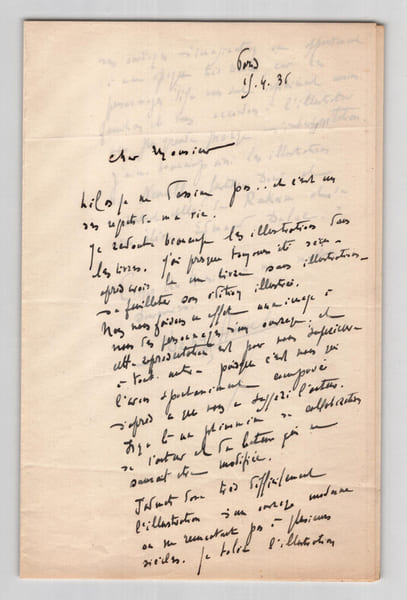 Paris
15.4.36
Cher Monsieur
hélas je ne dessine pas... et c'est un
des regrets de ma vie.
Je redoute beaucoup les illustrations dans
les livres. J'ai presque toujours été
après avoir lu un livre sans illustrations
à feuilleter son édition illustrée.
Nous nous faisons en effet une image à
nous des personnages d'un ouvrage, et
cette représentation est pour nous supérieure
à toute autre puisque c'est nous qui
l'avons spontanément composée
d'après ce que nous a suggéré l'auteur.
Il y a là un phénomène de collaboration
de l'auteur et du lecteur qui ne
saurait être modifié.
J'admets donc très difficilement
l'illustration d'un ouvrage moderne
ou ne remontant pas à plusieurs
siècles. Je tolère l'illustration